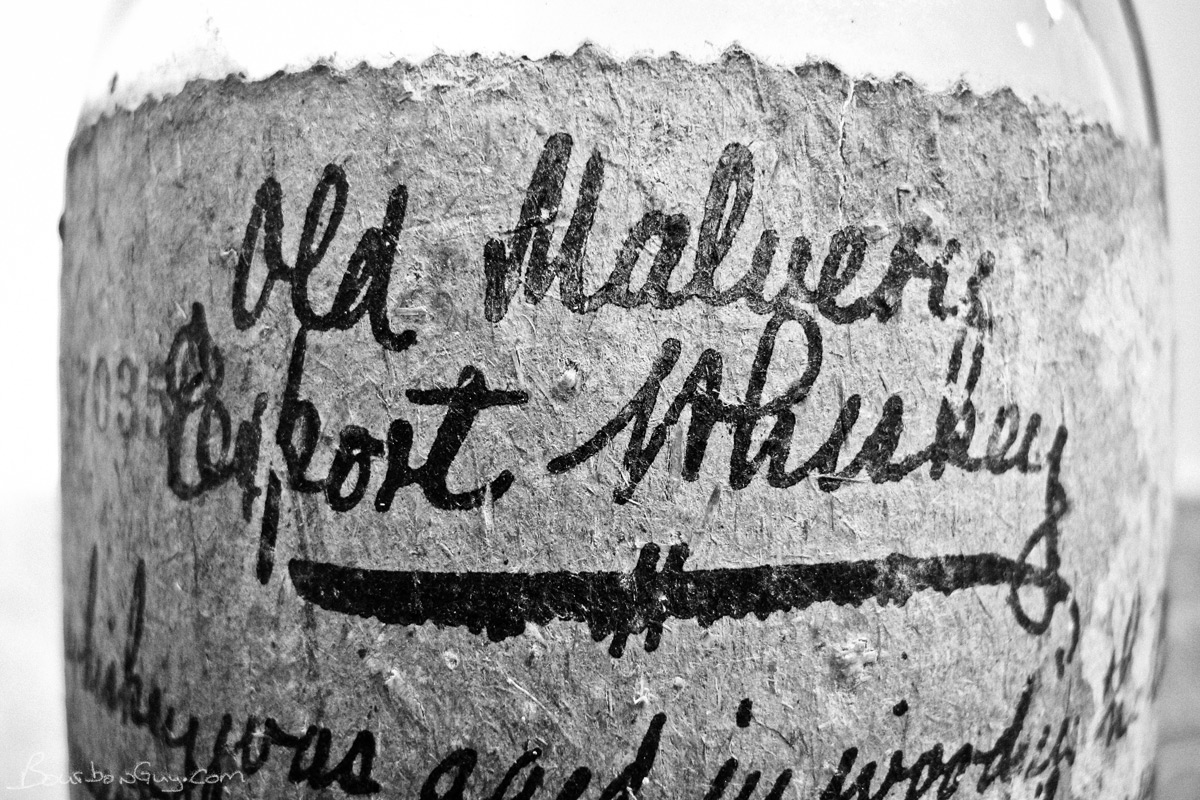 Old Malvern
Export Whiskey
was aged in wood
BourbonGuy.com